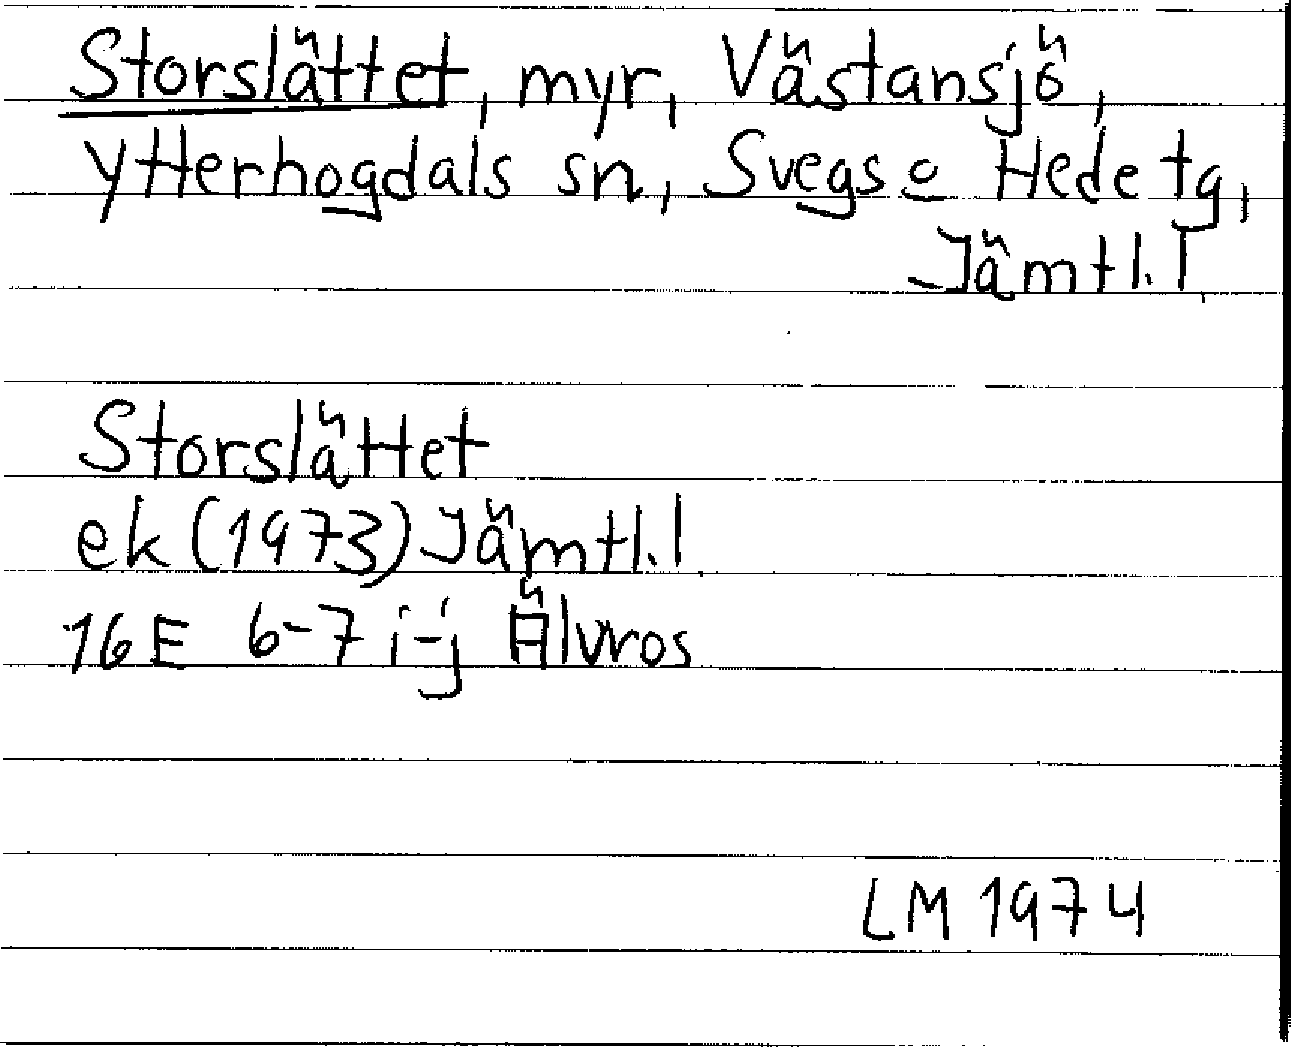 Storslättet, myr, Västansjö,
Ytterhogdals sn, Svegs o Hede tg,
Jämtl. l
Storslättet
ek (1973) Jämtl. l
16E 6-7 i-j Älvros
LM 1974